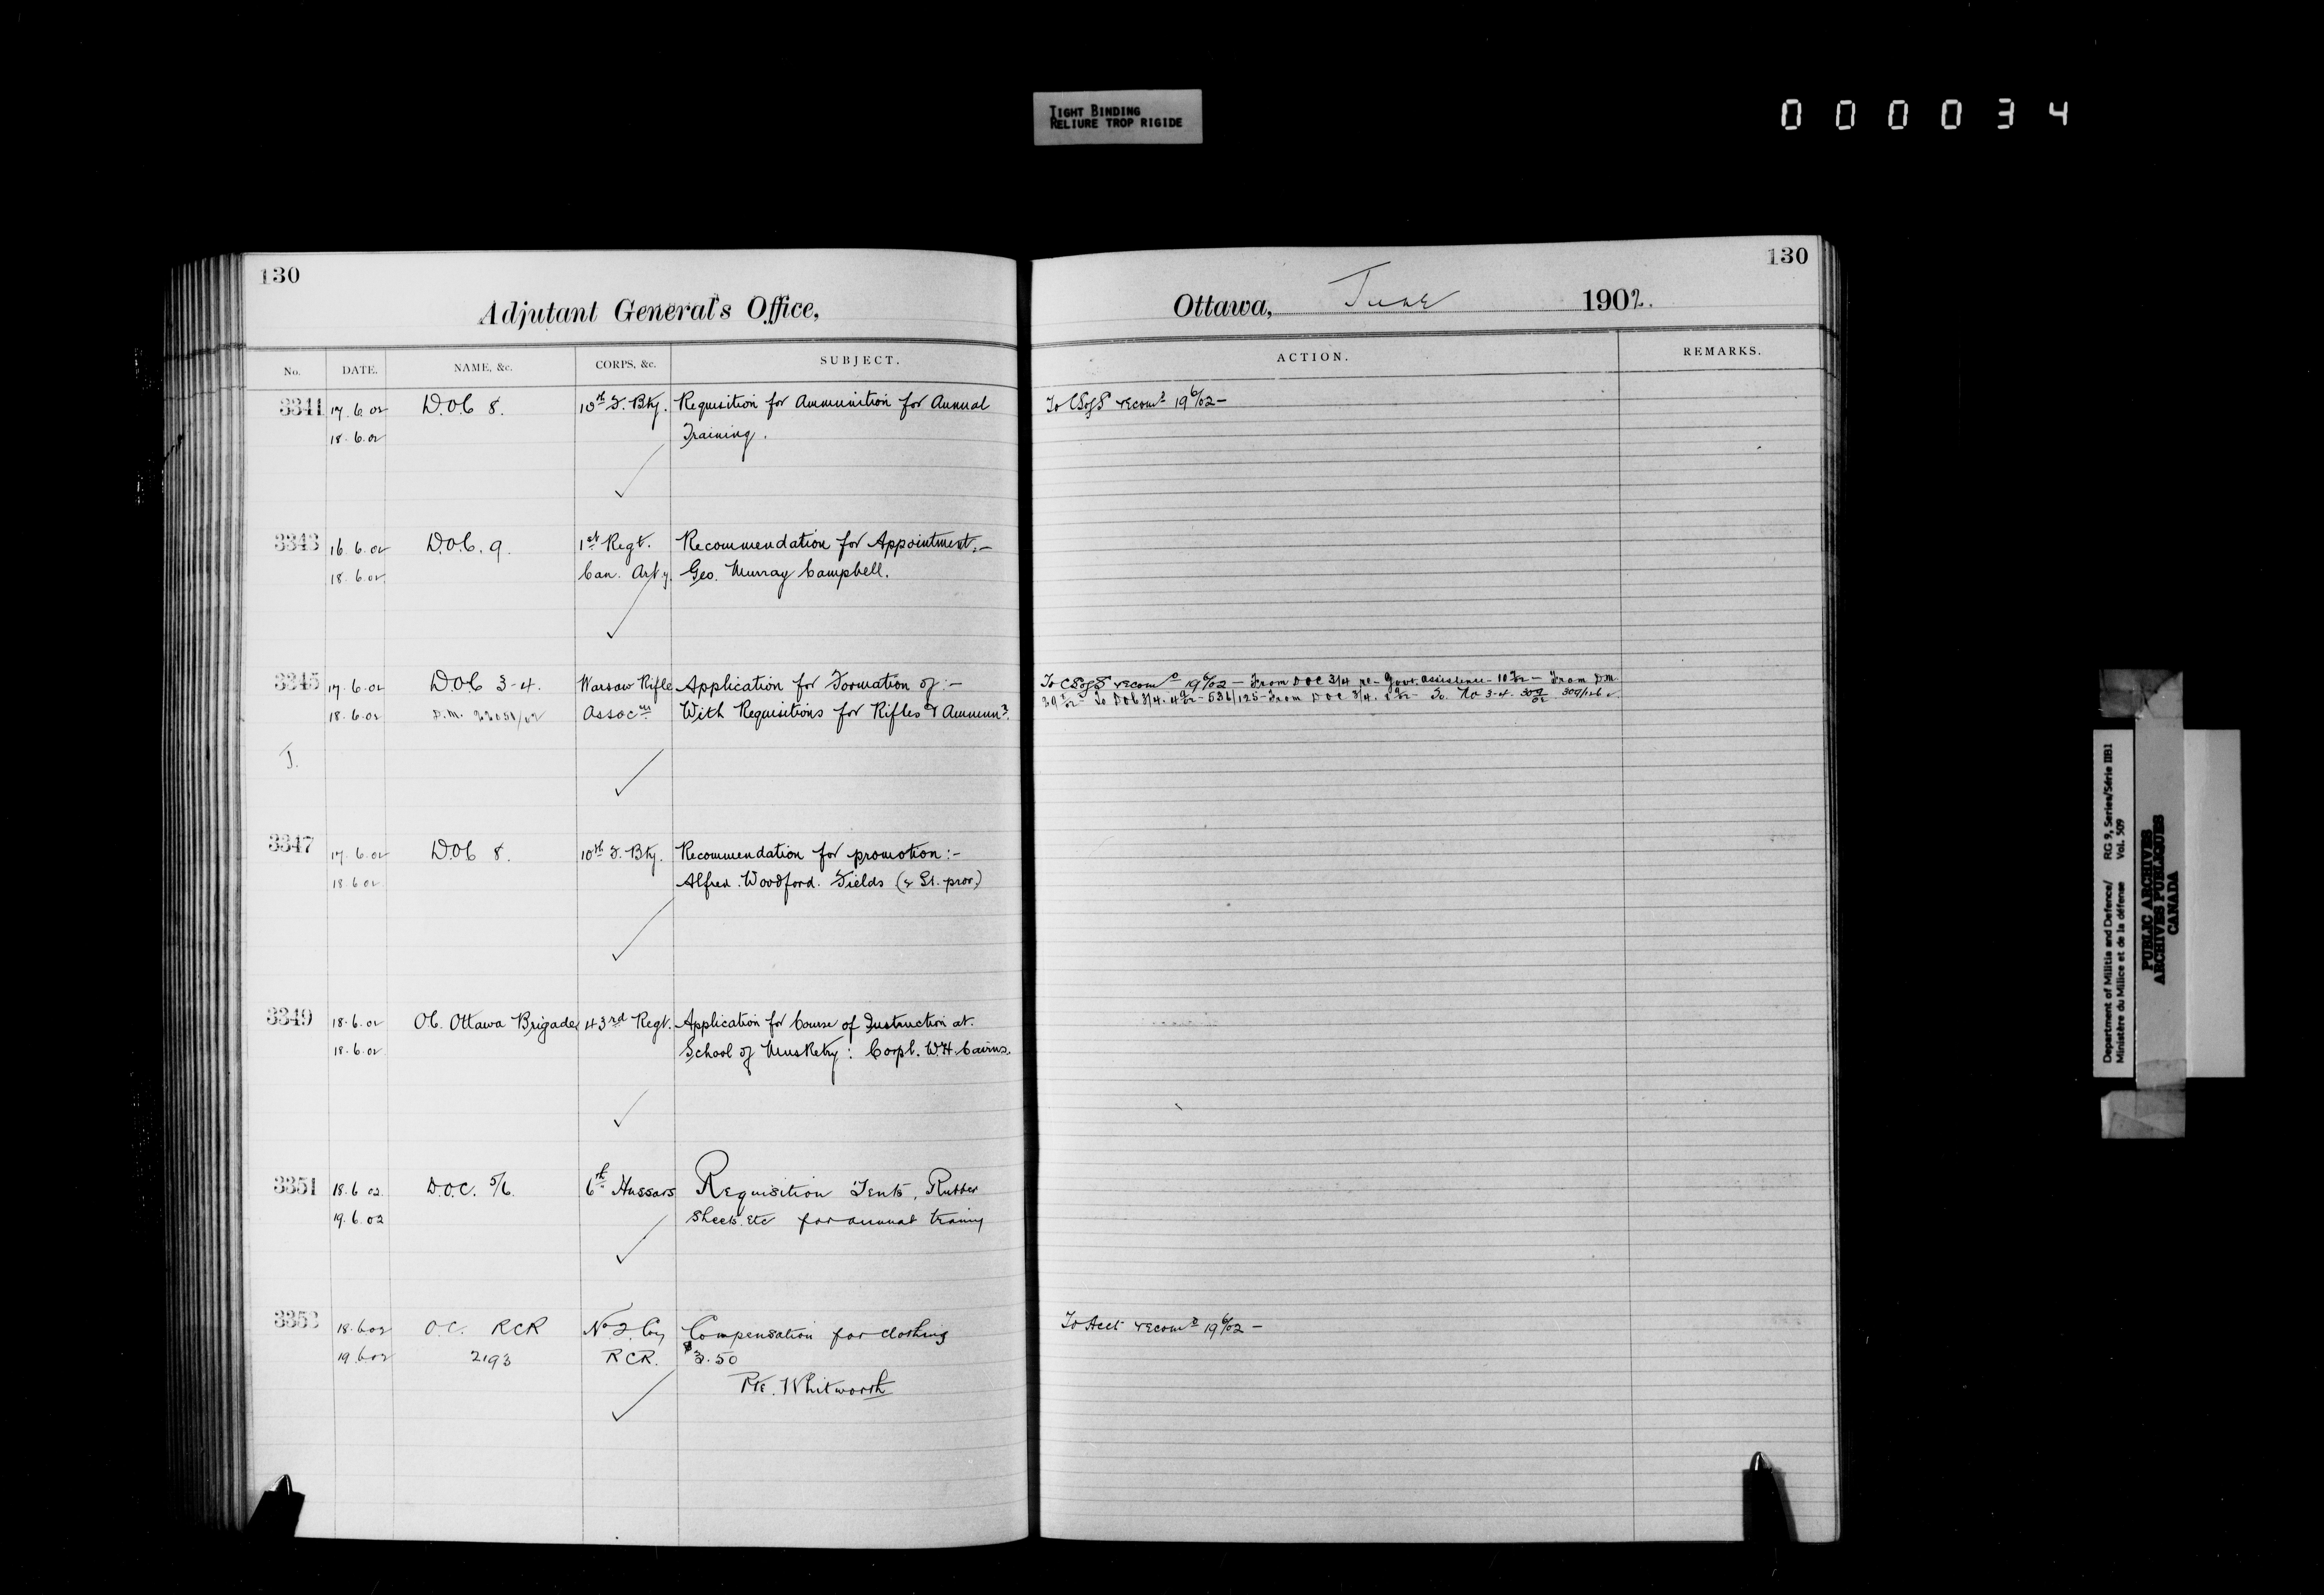 TIGHT BINDING
RELIURE TROP RIGIDE
000034
130
Adjutant General's Office,
No. DATE. NAME, &c. CORPS, &c. SUBJECT.
3341 17.6.02 D.O.C 8. 10th F. Bty. Requisition for Ammunition for Annual
18.6.02 Training.
3343 16.6.02 D.O.C. 9. 1st Regt. Recommendation for Appointment:-
18.6.02 Can. Arty. Geo. Murray Campbell.
3345 17.6.02 D.O.C 3-4. Warsaw Rifle Application for Formation of:-
18.6.02 D.M. /02 Assocn With Requisitions for Rifles & Ammunn.
T.
3347 17.6.02 D.O.C 8. 10th F. Bty. Recommendation for promotion:-
18.6.02 Alfred. Woodford. Fields (2 Lt. prov.)
3349 18.6.02 O.C. Ottawa Brigade 43rd Regt. Application for Course of Instruction at
18.6.02 School of Musketry: Corpl. W.H. Cairns.
3351 18.6.02 D.O.C. 5/6. 6th Hussars Requisition Tents, Rubber
19.6.02 Sheets, etc for annual training
3353 18.6.02 O.C. RCR No 2 Coy Compensation for clothing
19.6.02 2193 RCR. $3.50
Pte. Whitworth
130
Ottawa, June 1902.
ACTION. REMARKS.
To CSofS recomd 19/6/02-
To CSofS recomd 19/6/02 - From DOC 3/4 re- Govt. assistance - 10 - From D.M.
To DOC 3/4. - 536/125 - From DOC 3/4. To 3-4.
To Acct recomd 19/6/02 -
Department of Militia and Defence/ RG 9, Series/Série IIB1
Ministère du Milice et de la défense Vol. 509
PUBLIC ARCHIVES
ARCHIVES PUBLIQUES
CANADA